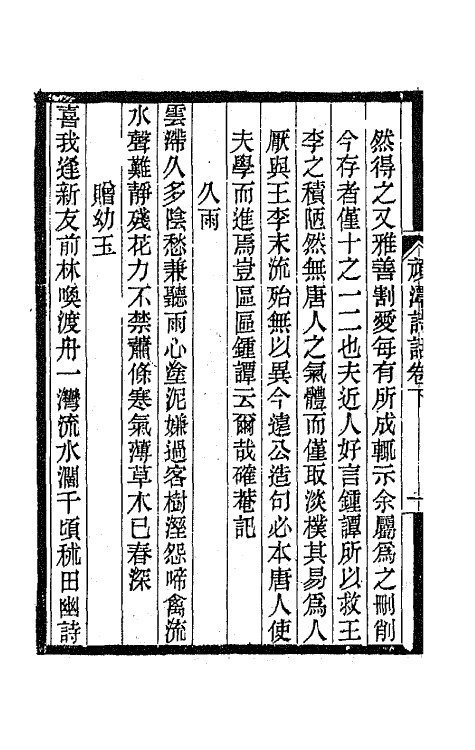 然得之又雅善割愛每有所成輒示余屬為之刪削
今存者僅十之一二也夫近人好言鍾譚所以救王
李之積陋然無唐人之氣體而僅取淡樸其易為人
厭與王李末流殆無以異今遠公造句必本唐人使
夫學而進焉豈區區鍾譚云爾哉確菴記
久雨
雲滯久多陰愁兼聽雨心塗泥嫌過客樹溼怨啼禽流
水聲難靜殘花力不禁蕭條寒氣薄草木已春深
贈幼玉
喜我逢新友前林喚渡舟一灣流水濶千頃秫田幽詩